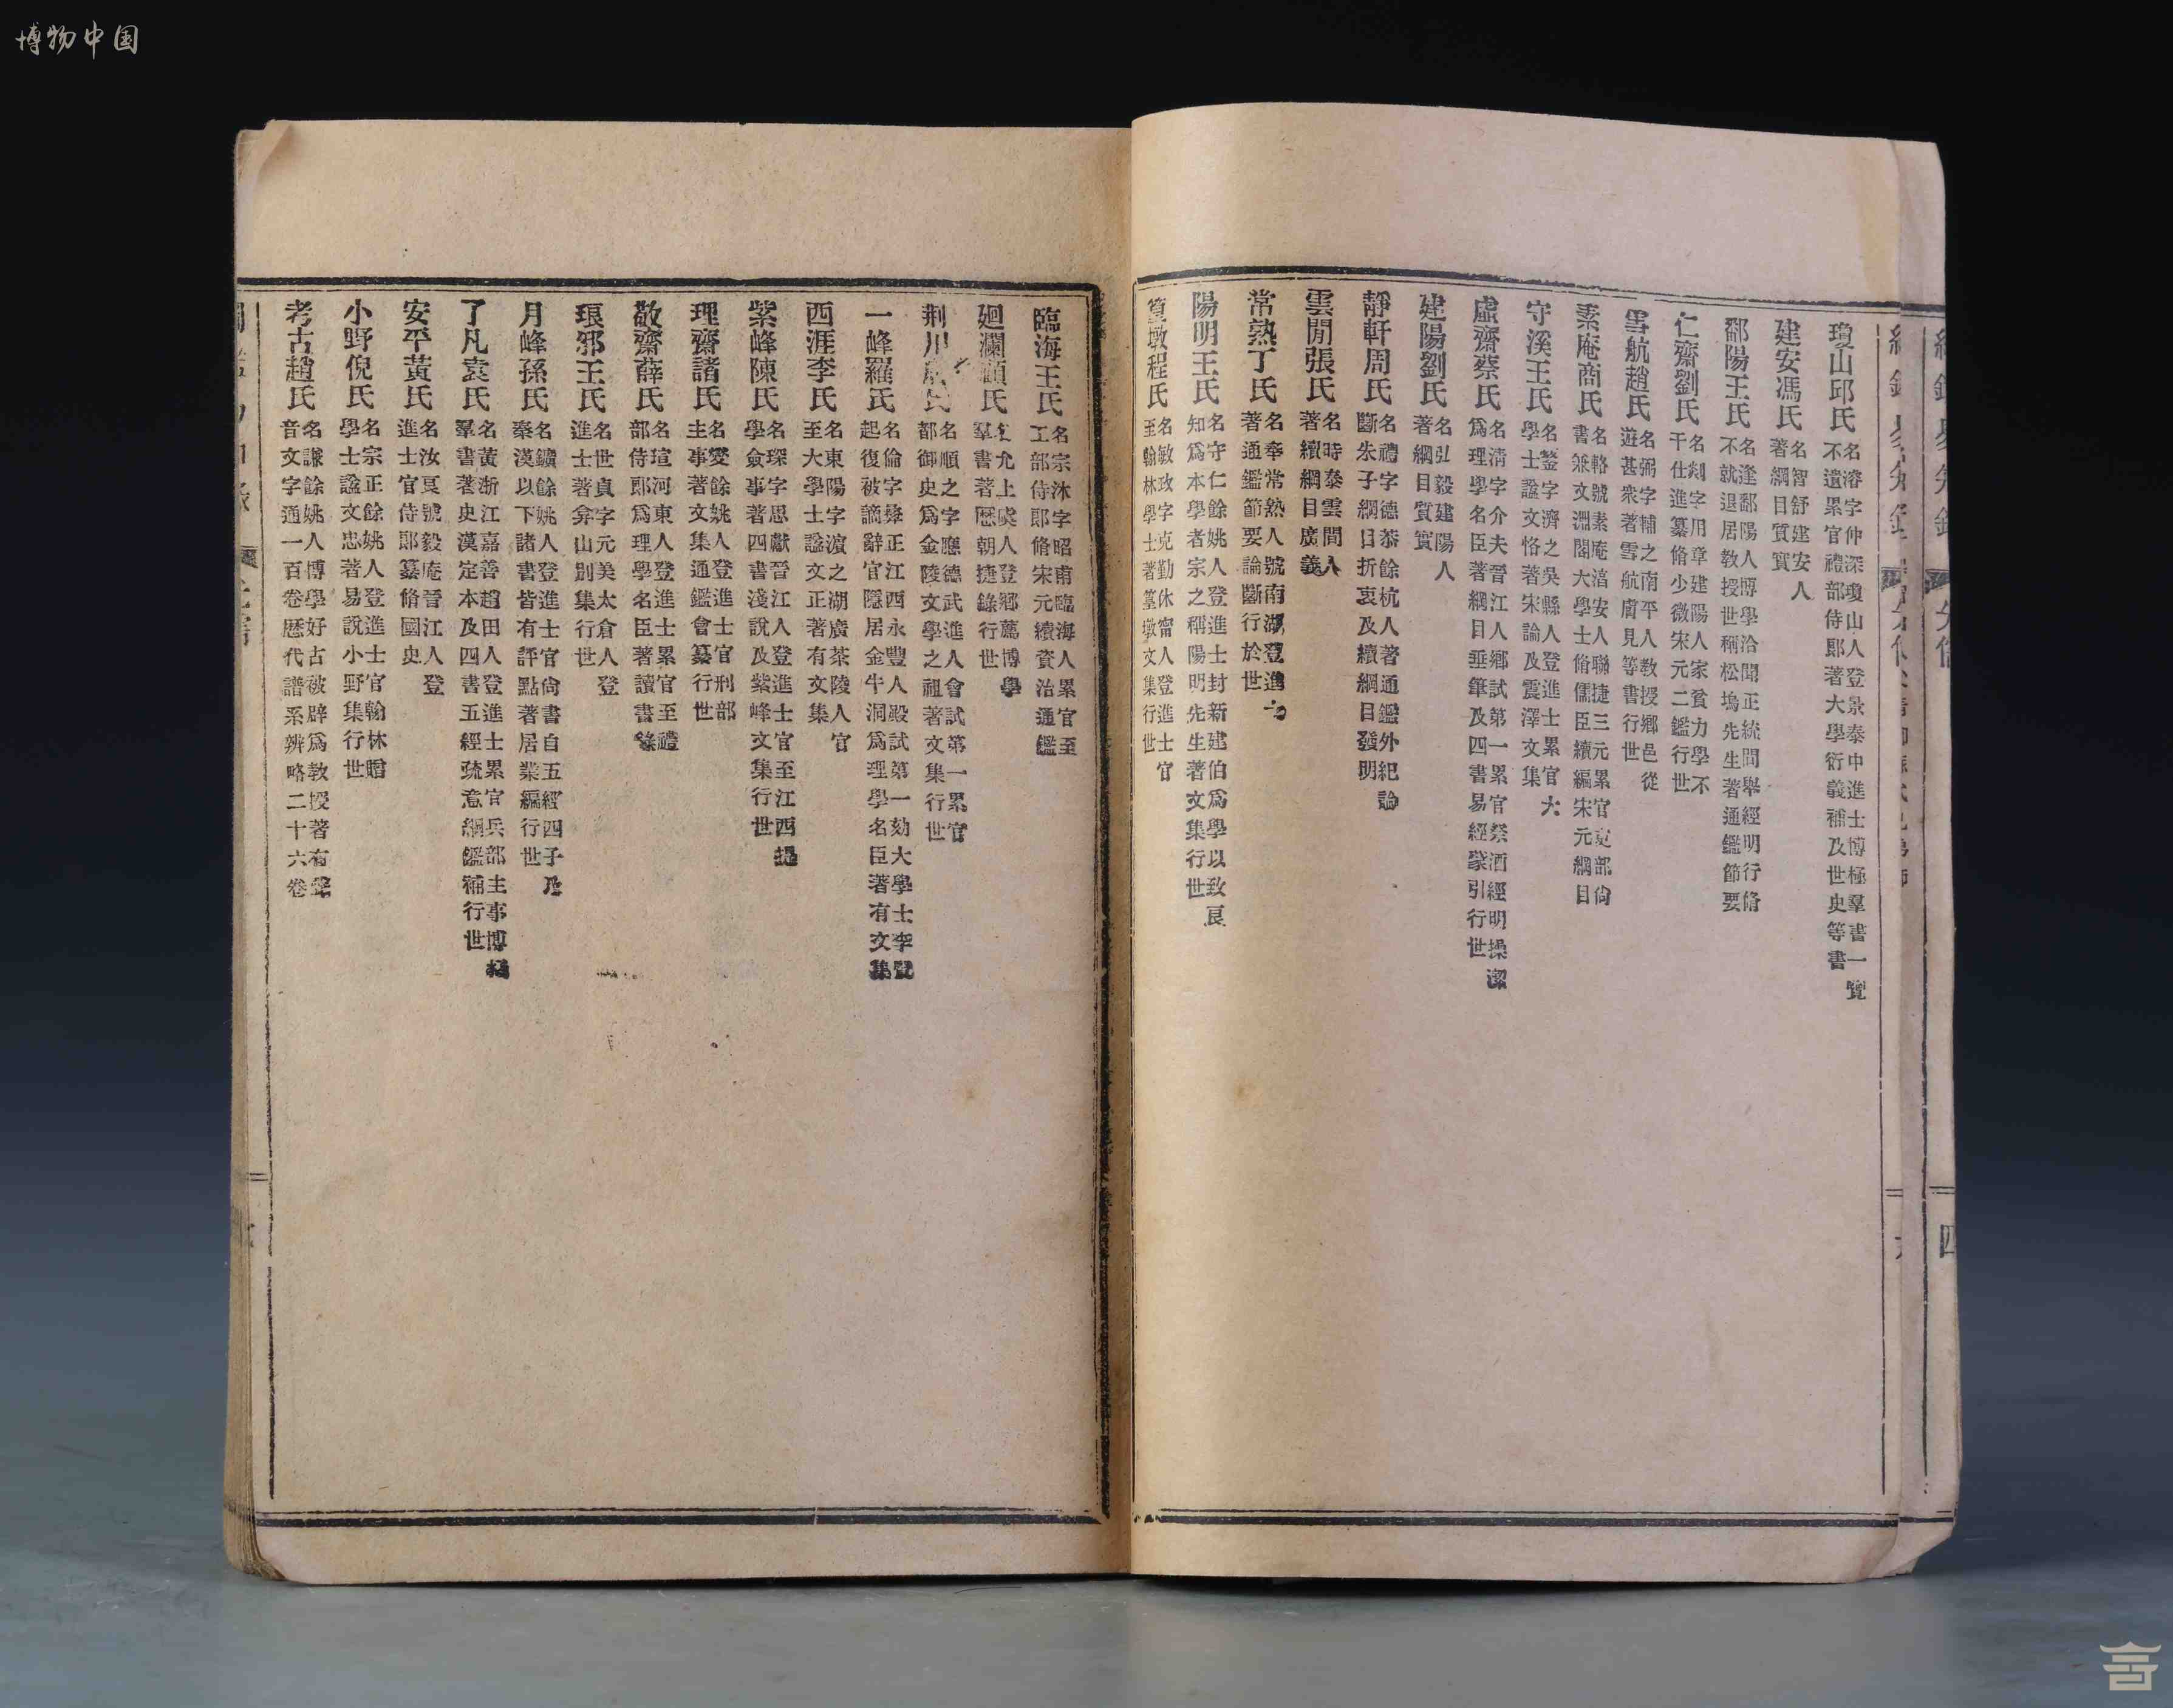 博物中国
瓊山邱氏 名濬字仲深瓊山人登景泰中進士博極羣書一覽
不遺累官禮部侍郎著大學衍義補及世史等書
建安馮氏 名智舒建安人
著綱目質實
鄱陽王氏 名逢鄱陽人博學洽聞正統間舉經明行脩
不就退居教授世稱松塢先生著通鑑節要
仁齋劉氏 名剡字用章建陽人家貧力學不
干仕進纂脩少微宋元二鑑行世
雪航趙氏 名弼字輔之南平人教授鄉邑從
遊甚衆著雪航膚見等書行世
素庵商氏 名輅號素庵淳安人聯捷三元累官吏部尙
書兼文淵閣大學士脩儒臣續編宋元綱目
守溪王氏 名鏊字濟之吳縣人登進士累官大
學士諡文恪著宋論及震澤文集
虛齋蔡氏 名淸字介夫晉江人鄉試第一累官祭酒經明操潔
爲理學名臣著綱目垂筆及四書易經蒙引行世
建陽劉氏 名弘毅建陽人
著綱目質實
靜軒周氏 名禮字德恭餘杭人著通鑑外紀論
斷朱子綱目折衷及續綱目發明
雲間張氏 名時泰雲間人
著續綱目廣義
常熟丁氏 名奉常熟人號南湖登進士
著通鑑節要論斷行於世
陽明王氏 名守仁餘姚人登進士封新建伯爲學以致良
知爲本學者宗之稱陽明先生著文集行世
篁墩程氏 名敏政字克勤休甯人登進士官
至翰林學士著篁墩文集行世
臨海王氏 名宗沐字昭甫臨海人累官至
工部侍郎脩宋元續資治通鑑
迴瀾顧氏 名允上虞人登鄉薦博學
羣書著歷朝捷錄行世
荆川 氏 名順之字應德武進人會試第一累官
都御史爲金陵文學之祖著文集行世
一峰羅氏 名倫字彝正江西永豐人殿試第一劾大學士李賢
起復被謫辭官隱居金牛洞爲理學名臣著有文集
西涯李氏 名東陽字濵之湖廣茶陵人官
至大學士諡文正著有文集
紫峰陳氏 名琛字思獻晉江人登進士官至江西提
學僉事著四書淺說及紫峰文集行世
理齋諸氏 名燮餘姚人登進士官刑部
主事著文集通鑑會纂行世
敬齋薛氏 名瑄河東人登進士累官至禮
部侍郎爲理學名臣著讀書錄
琅邪王氏 名世貞字元美太倉人登
進士著弇山別集行世
月峰孫氏 名鑛餘姚人登進士官尙書自五經四子及
秦漢以下諸書皆有評點著居業編行世
了凡袁氏 名黃浙江嘉善趙田人登進士累官兵部主事博極
羣書著史漢定本及四書五經疏意綱鑑補行世
安平黃氏 名汝良號毅庵晉江人登
進士官侍郎纂脩國史
小野倪氏 名宗正餘姚人登進士官翰林贈
學士諡文忠著易說小野集行世
考古趙氏 名謙餘姚人博學好古被辟爲教授著有聲
音文字通一百卷歷代譜系辨略二十六卷
四